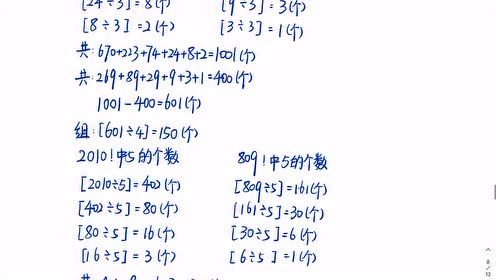 [24÷3]=8(个) [9÷3]=3(个)
[8÷3]=2(个) [3÷3]=1(个)
共:670+223+74+24+8+2=1001(个)
共:269+89+29+9+3+1=400(个)
1001-400=601(个)
组:[601÷4]=150(个)
2010!中5的个数 809!中5的个数
[2010÷5]=402(个) [809÷5]=161(个)
[402÷5]=80(个) [161÷5]=30(个)
[80÷5]=16(个) [30÷5]=6(个)
[16÷5]=3(个) [6÷5]=1(个)
8
13